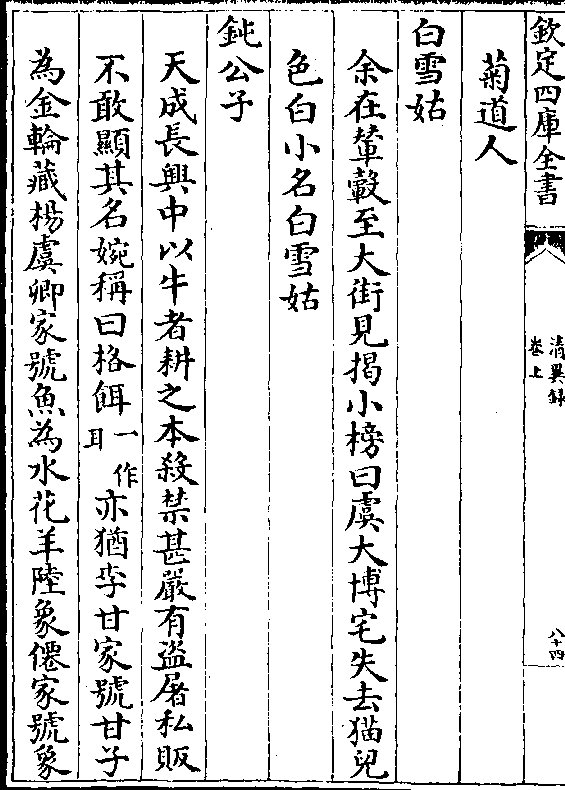 欽定四庫全書
清異録
卷上
八十四
菊道人
白雪姑
余在輦轂至大街見揭小榜曰虞大博宅失去猫兒
色白小名白雪姑
鈍公子
天成長興中以牛者耕之本殺禁甚嚴有盜屠私販
不敢顯其名婉稱曰格餌一作耳亦猶李甘家號甘子
為金輪藏楊虞卿家號魚為水花羊陸象僊家號象